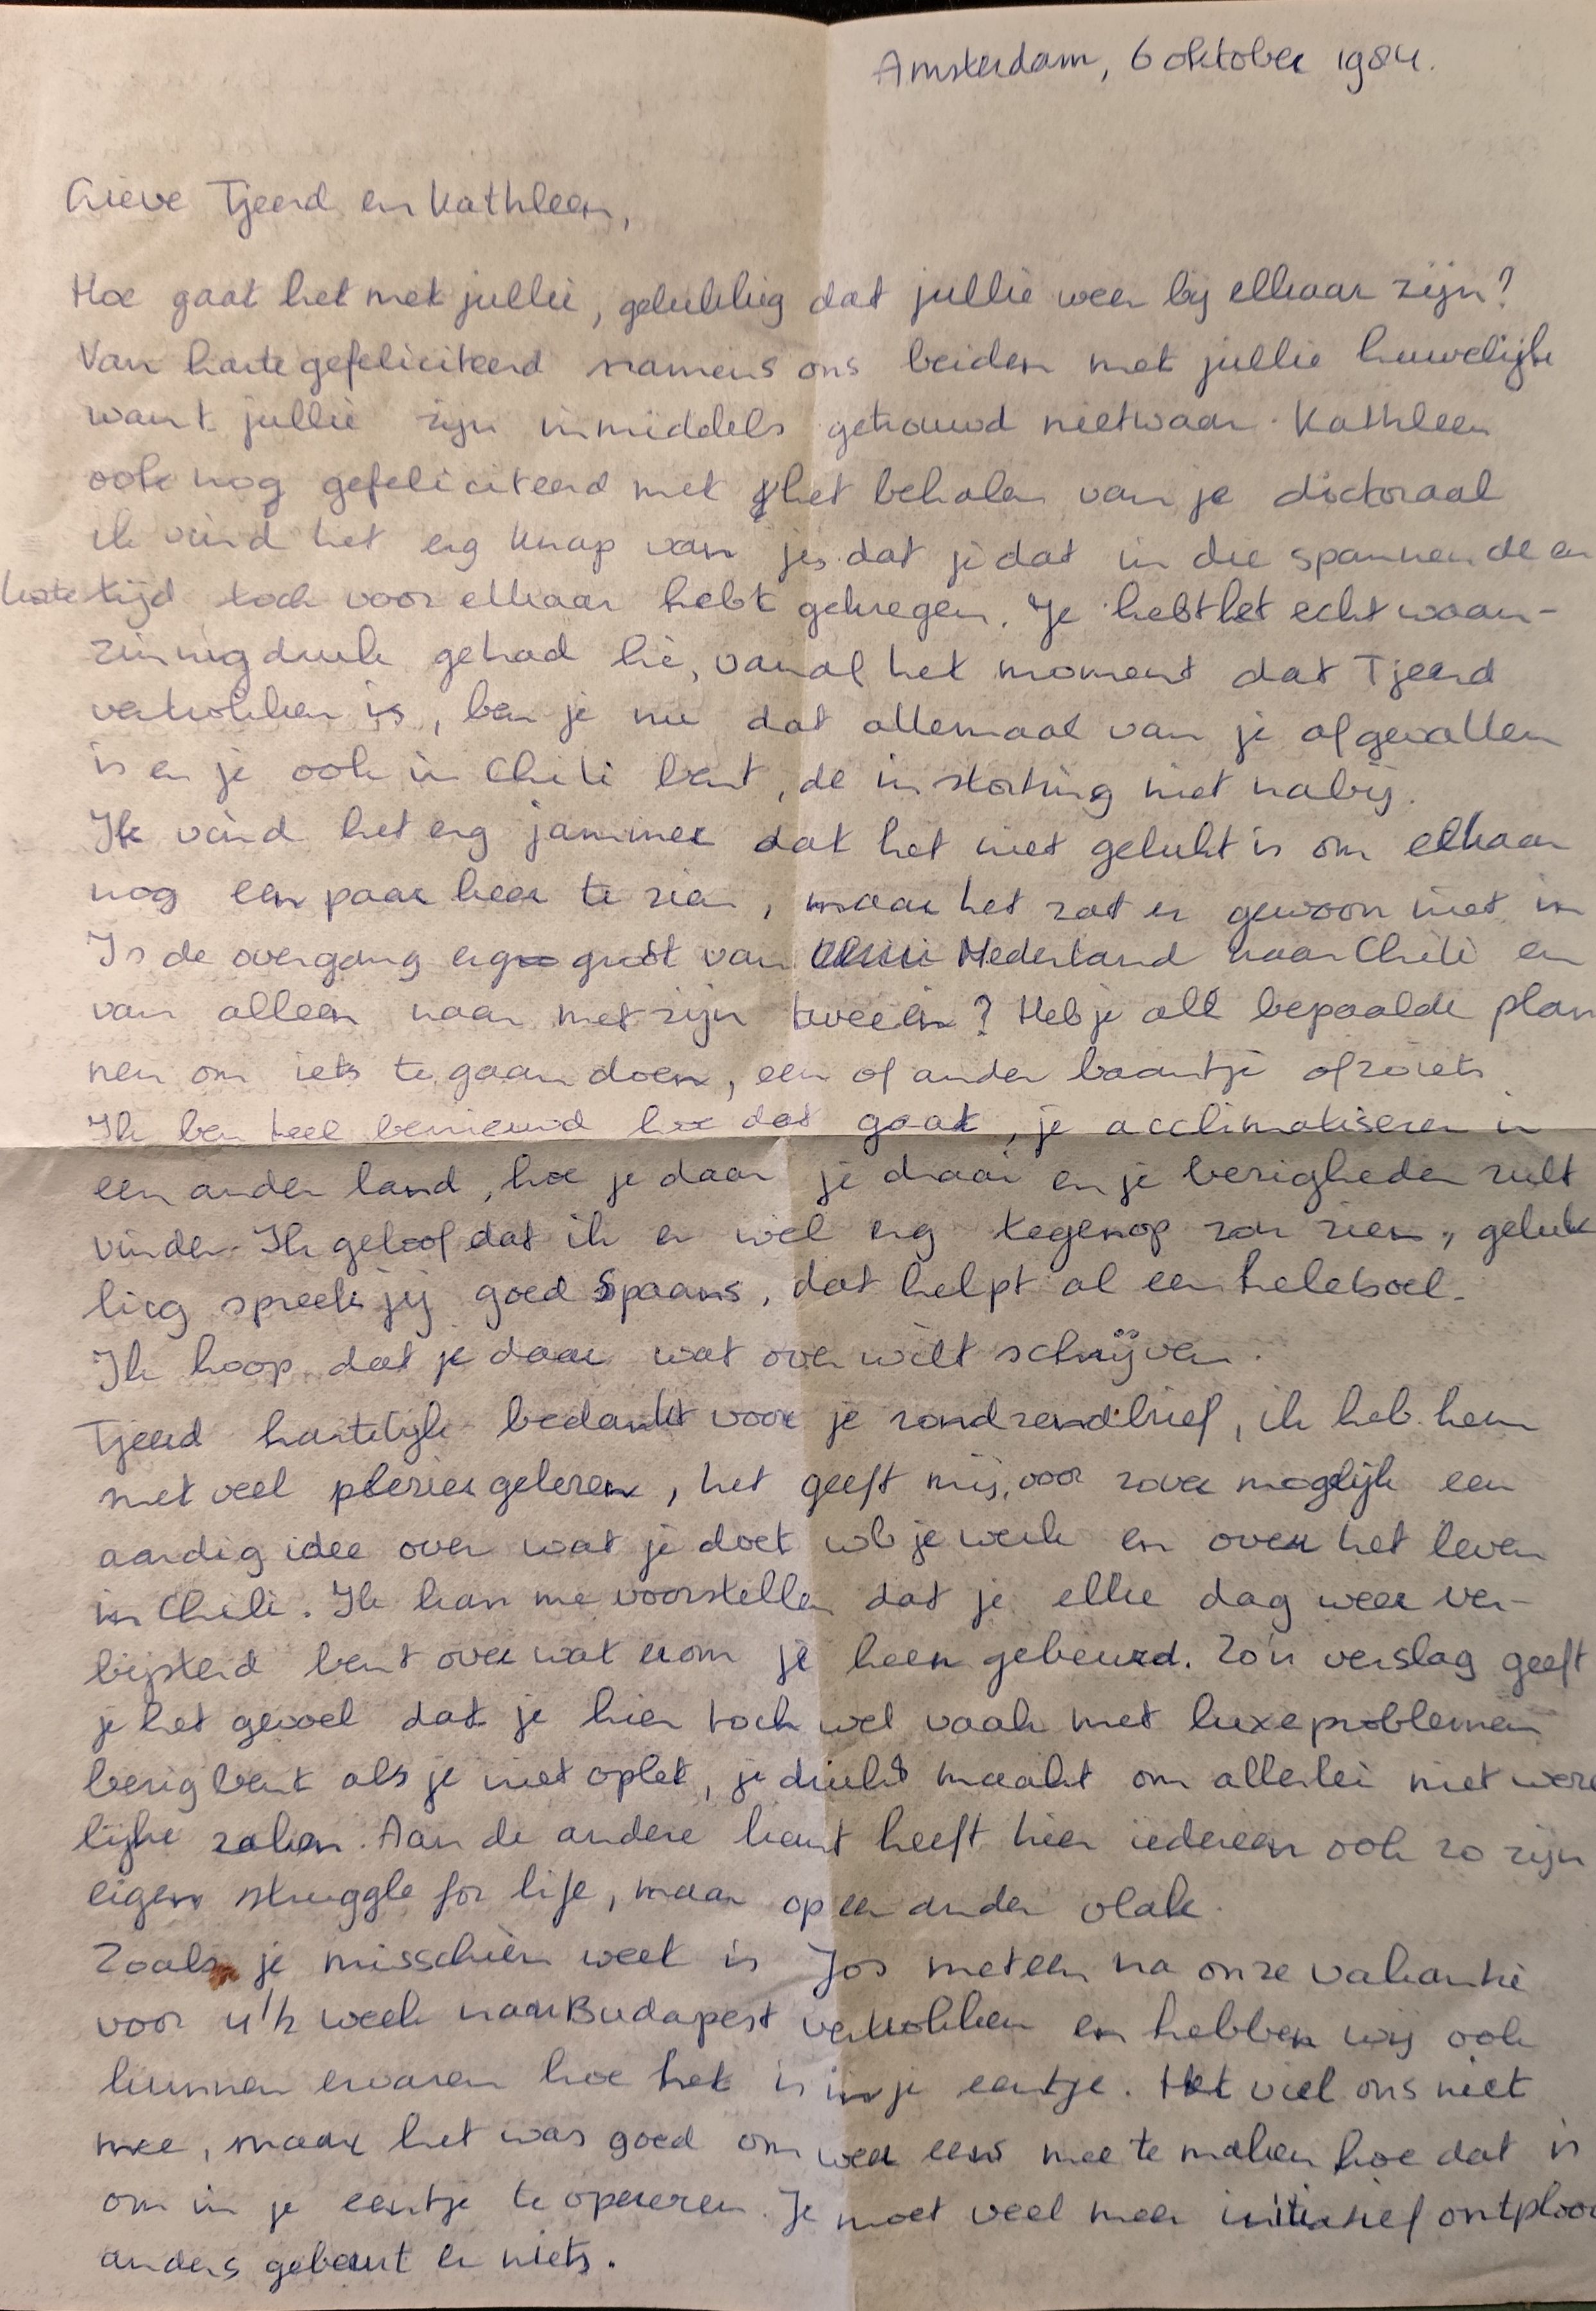 Amsterdam, 6 oktober 1984.
Lieve Tjeerd en Kathleen,
Hoe gaat het met jullie, gelukkig dat jullie weer bij elkaar zijn?
Van harte gefeliciteerd namens ons beiden met jullie huwelijk
want jullie zijn inmiddels getrouwd nietwaar. Kathleen
ook nog gefeliciteerd met het behalen van je doctoraal
ik vind het erg knap van je, dat je dat in die spannende en
korte tijd toch voor elkaar hebt gekregen. Je hebt het echt waan-
zinnig druk gehad hè, vanaf het moment dat Tjeerd
vertrokken is, ben je nu dat allemaal van je afgevallen
is en je ook in Chili bent, de instorting niet nabij.
Ik vind het erg jammer dat het niet gelukt is om elkaar
nog een paar keer te zien, maar het zat er gewoon niet in
Is de overgang erg groot van Nederland naar Chili en
van alleen naar met zijn tweeën? Heb je all bepaalde plan
nen om iets te gaan doen, een of ander baantje of zoiets
Ik ben heel benieuwd hoe dat gaat, je acclimatiseren in
een ander land, hoe je daar je draai en je bezigheden zult
vinden. Ik geloof dat ik er wel erg tegenop zou zien, geluk
kig spreek jij goed Spaans, dat helpt al een heleboel.
Ik hoop dat je daar wat over wilt schrijven.
Tjeerd hartelijk bedankt voor je rondzendbrief, ik heb hem
met veel plezier gelezen, het geeft mij, voor zover mogelijk een
aardig idee over wat je doet wb je werk en over het leven
in Chili. Ik kan me voorstellen dat je elke dag weer ver-
bijsterd bent over wat er om je heen gebeurd. Zo'n verslag geeft
je het gevoel dat je hier toch wel vaak met luxeproblemen
bezig bent als je niet oplet, je drukt maakt om allerlei niet weze
lijke zaken. Aan de andere kant heeft hier iedereen ook zo zijn
eigen struggle for life, maar op een ander vlak.
Zoals je misschien weet is Jos meteen na onze vakantie
voor 4 1/2 week naar Budapest vertrokken en hebben wij ook
kunnen ervaren hoe het is in je eentje. Het viel ons niet
mee, maar het was goed om weer eens mee te maken hoe dat is
om in je eentje te opereren. Je moet veel meer initiatief ontplooi
anders gebeurt er niets.